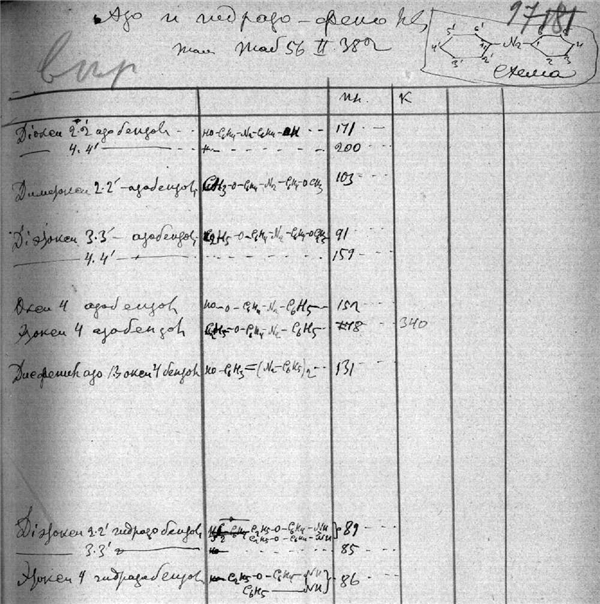 Азо и гидразо-фенолы
97 181
Таб 56 II 382
4' 3' 2' N₂ 1 2 3
схема
впр
пк. К
Діокси 2.2' азобензол HO-C₆H₄-N₂-C₆H₄-OH 171
4.4' 200
Диметокси 2.2'-азобензол CH₃-O-C₆H₄-N₂-C₆H₄-OCH₃ 103
Діэтокси 3.3'-азобензол C₂H₅-O-C₆H₄-N₂-C₆H₄-OC₂H₅ 91
4.4' 159
Окси 4 азобензол HO-O-C₆H₄-N₂-C₆H₅ 152
Этокси 4 азобензол C₂H₅-O-C₆H₄-N₂-C₆H₅ 78 340
HO-C₆H₃=(N₂-C₆H₅)₂ 131
Діэтокси 2.2' гидразобензол C₂H₅-O-C₆H₄-NH 89
C₂H₅-O-C₆H₄-NH
3.3' 85
Этокси 4 гидразобензол C₂H₅-O-C₆H₄-NH 86
C₆H₅-NH